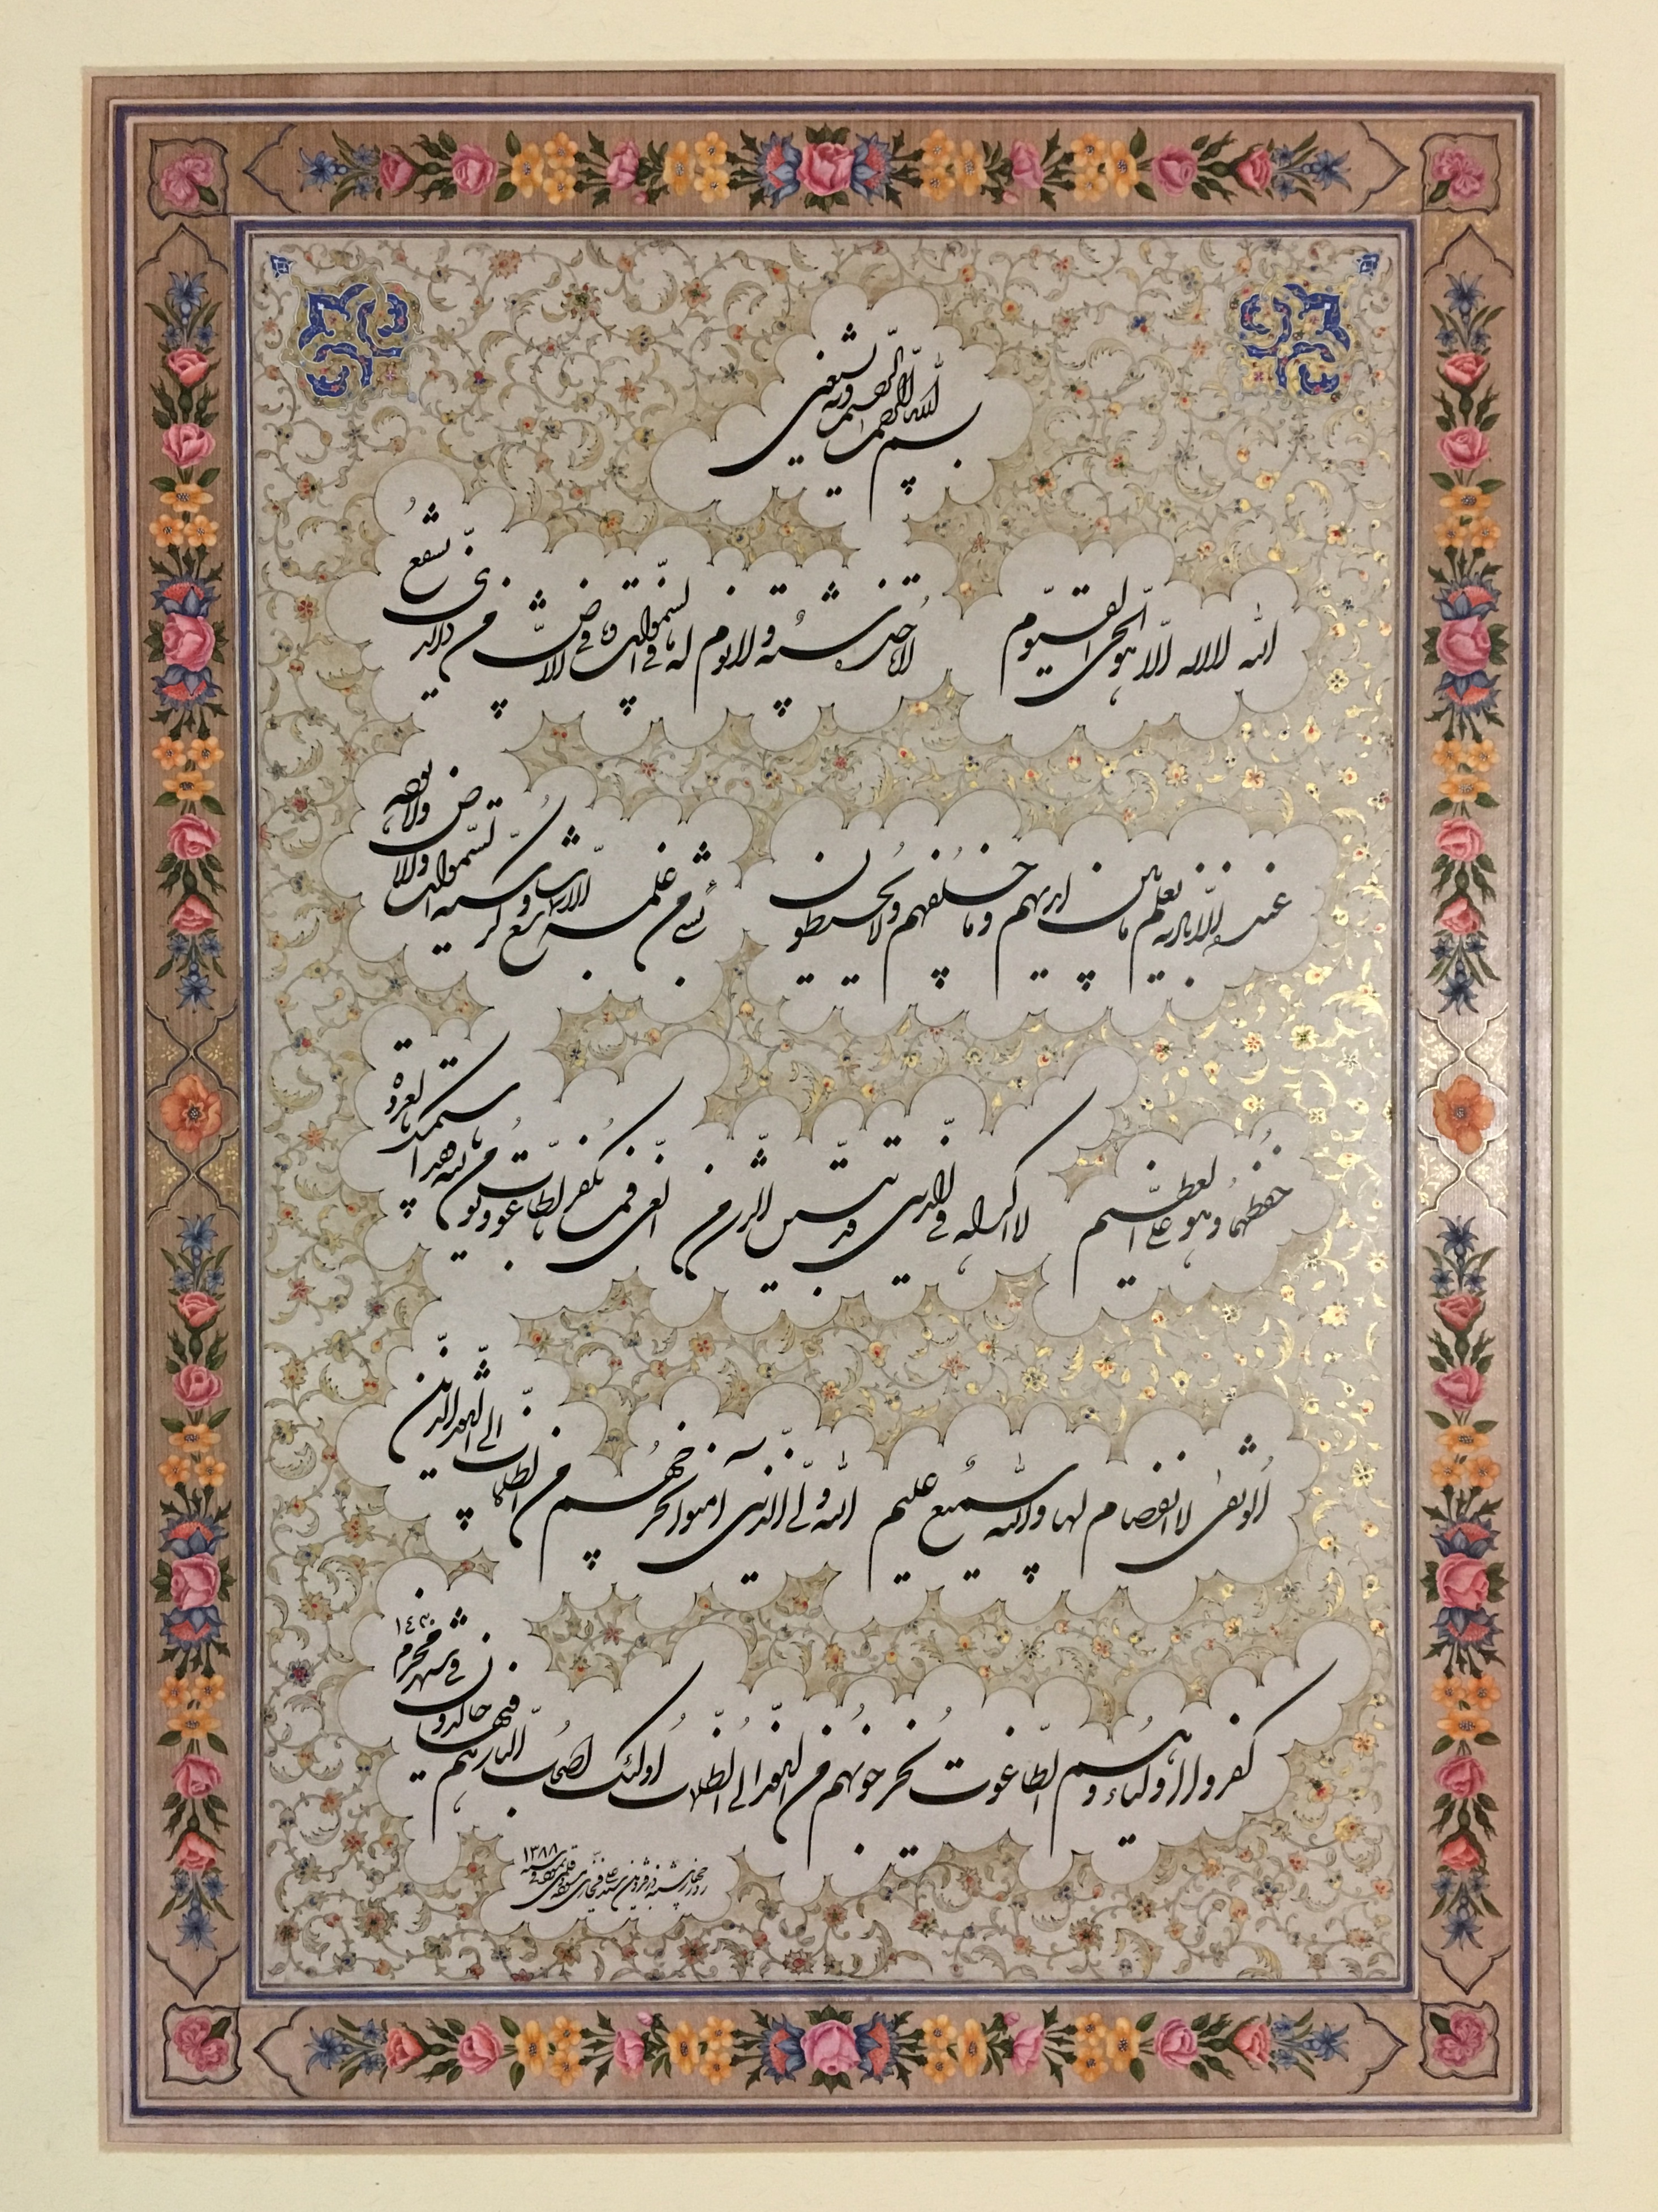 بسم الله الرحمن الرحیم وبه نستعین
الله لا اله الا هو الحی القیوم لا تأخذه سنة ولا نوم له ما فی السموات وما فی الارض من ذا الذی یشفع
عنده الا باذنه یعلم ما بین ایدیهم وما خلفهم ولا یحیطون بشیء من علمه الا بما شاء وسع کرسیه السموات والارض ولا یؤده
حفظهما وهو العلی العظیم لا اکراه فی الدین قد تبین الرشد من الغی فمن یکفر بالطاغوت ویؤمن بالله فقد استمسک بالعروة
الوثقی لا انفصام لها والله سمیع علیم الله ولی الذین آمنوا یخرجهم من الظلمات الی النور والذین
کفروا اولیاءهم الطاغوت یخرجونهم من النور الی الظلمات اولئک اصحاب النار هم فیها خالدون فی شهر محرم
۱۳۸۸